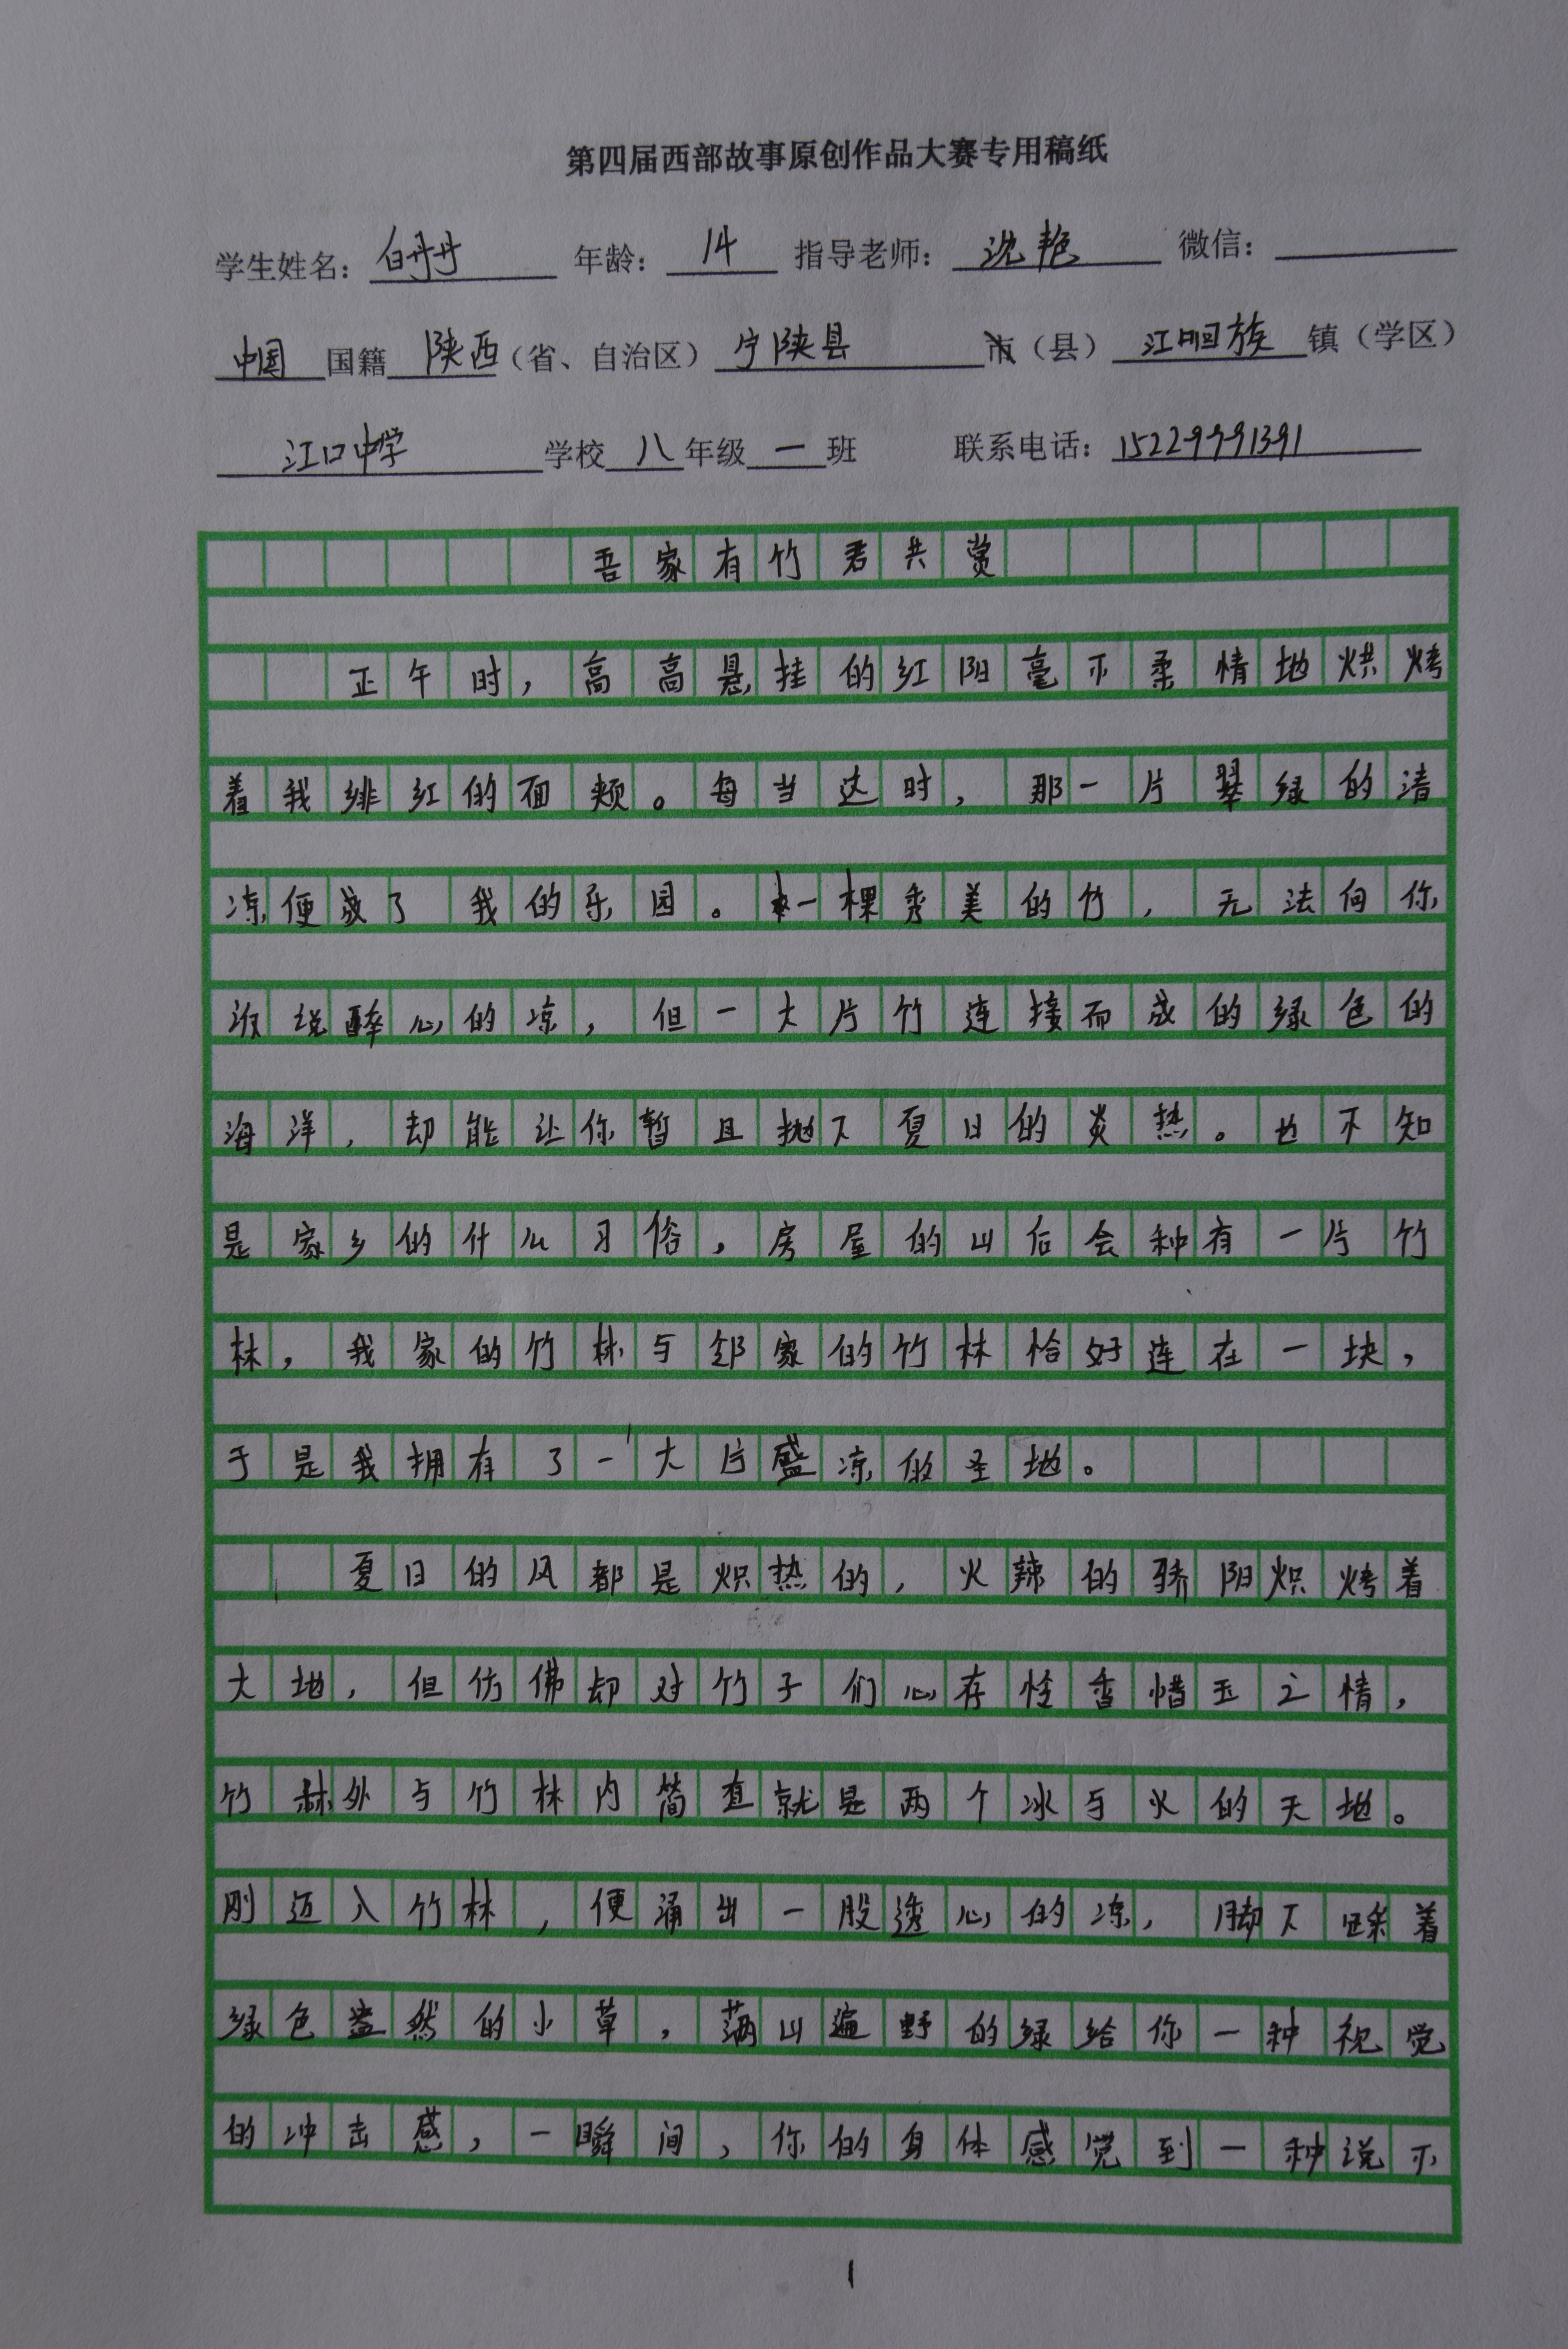 第四届西部故事原创作品大赛专用稿纸
学生姓名：白丹丹 年龄：14 指导老师：沈艳 微信：
中国国籍陕西（省、自治区）宁陕县市（县）江口回族镇（学区）
江口中学学校八年级一班 联系电话：15229991391
吾家有竹君共赏
正午时，高高悬挂的红阳毫不柔情地烘烤
着我绯红的面颊。每当这时，那一片翠绿的清
凉便成了我的乐园。一棵秀美的竹，无法向你
诉说醉心的凉，但一大片竹连接而成的绿色的
海洋，却能让你暂且抛下夏日的炎热。也不知
是家乡的什么习俗，房屋的山后会种有一片竹
林，我家的竹林与邻家的竹林恰好连在一块，
于是我拥有了一大片盛凉的圣地。
夏日的风都是炽热的，火辣的骄阳炽烤着
大地，但仿佛却对竹子们心存怜香惜玉之情，
竹林外与竹林内简直就是两个冰与火的天地。
刚迈入竹林，便涌出一股透心的凉，脚下踩着
绿色盎然的小草，满山遍野的绿给你一种视觉
的冲击感，一瞬间，你的身体感觉到一种说不
1